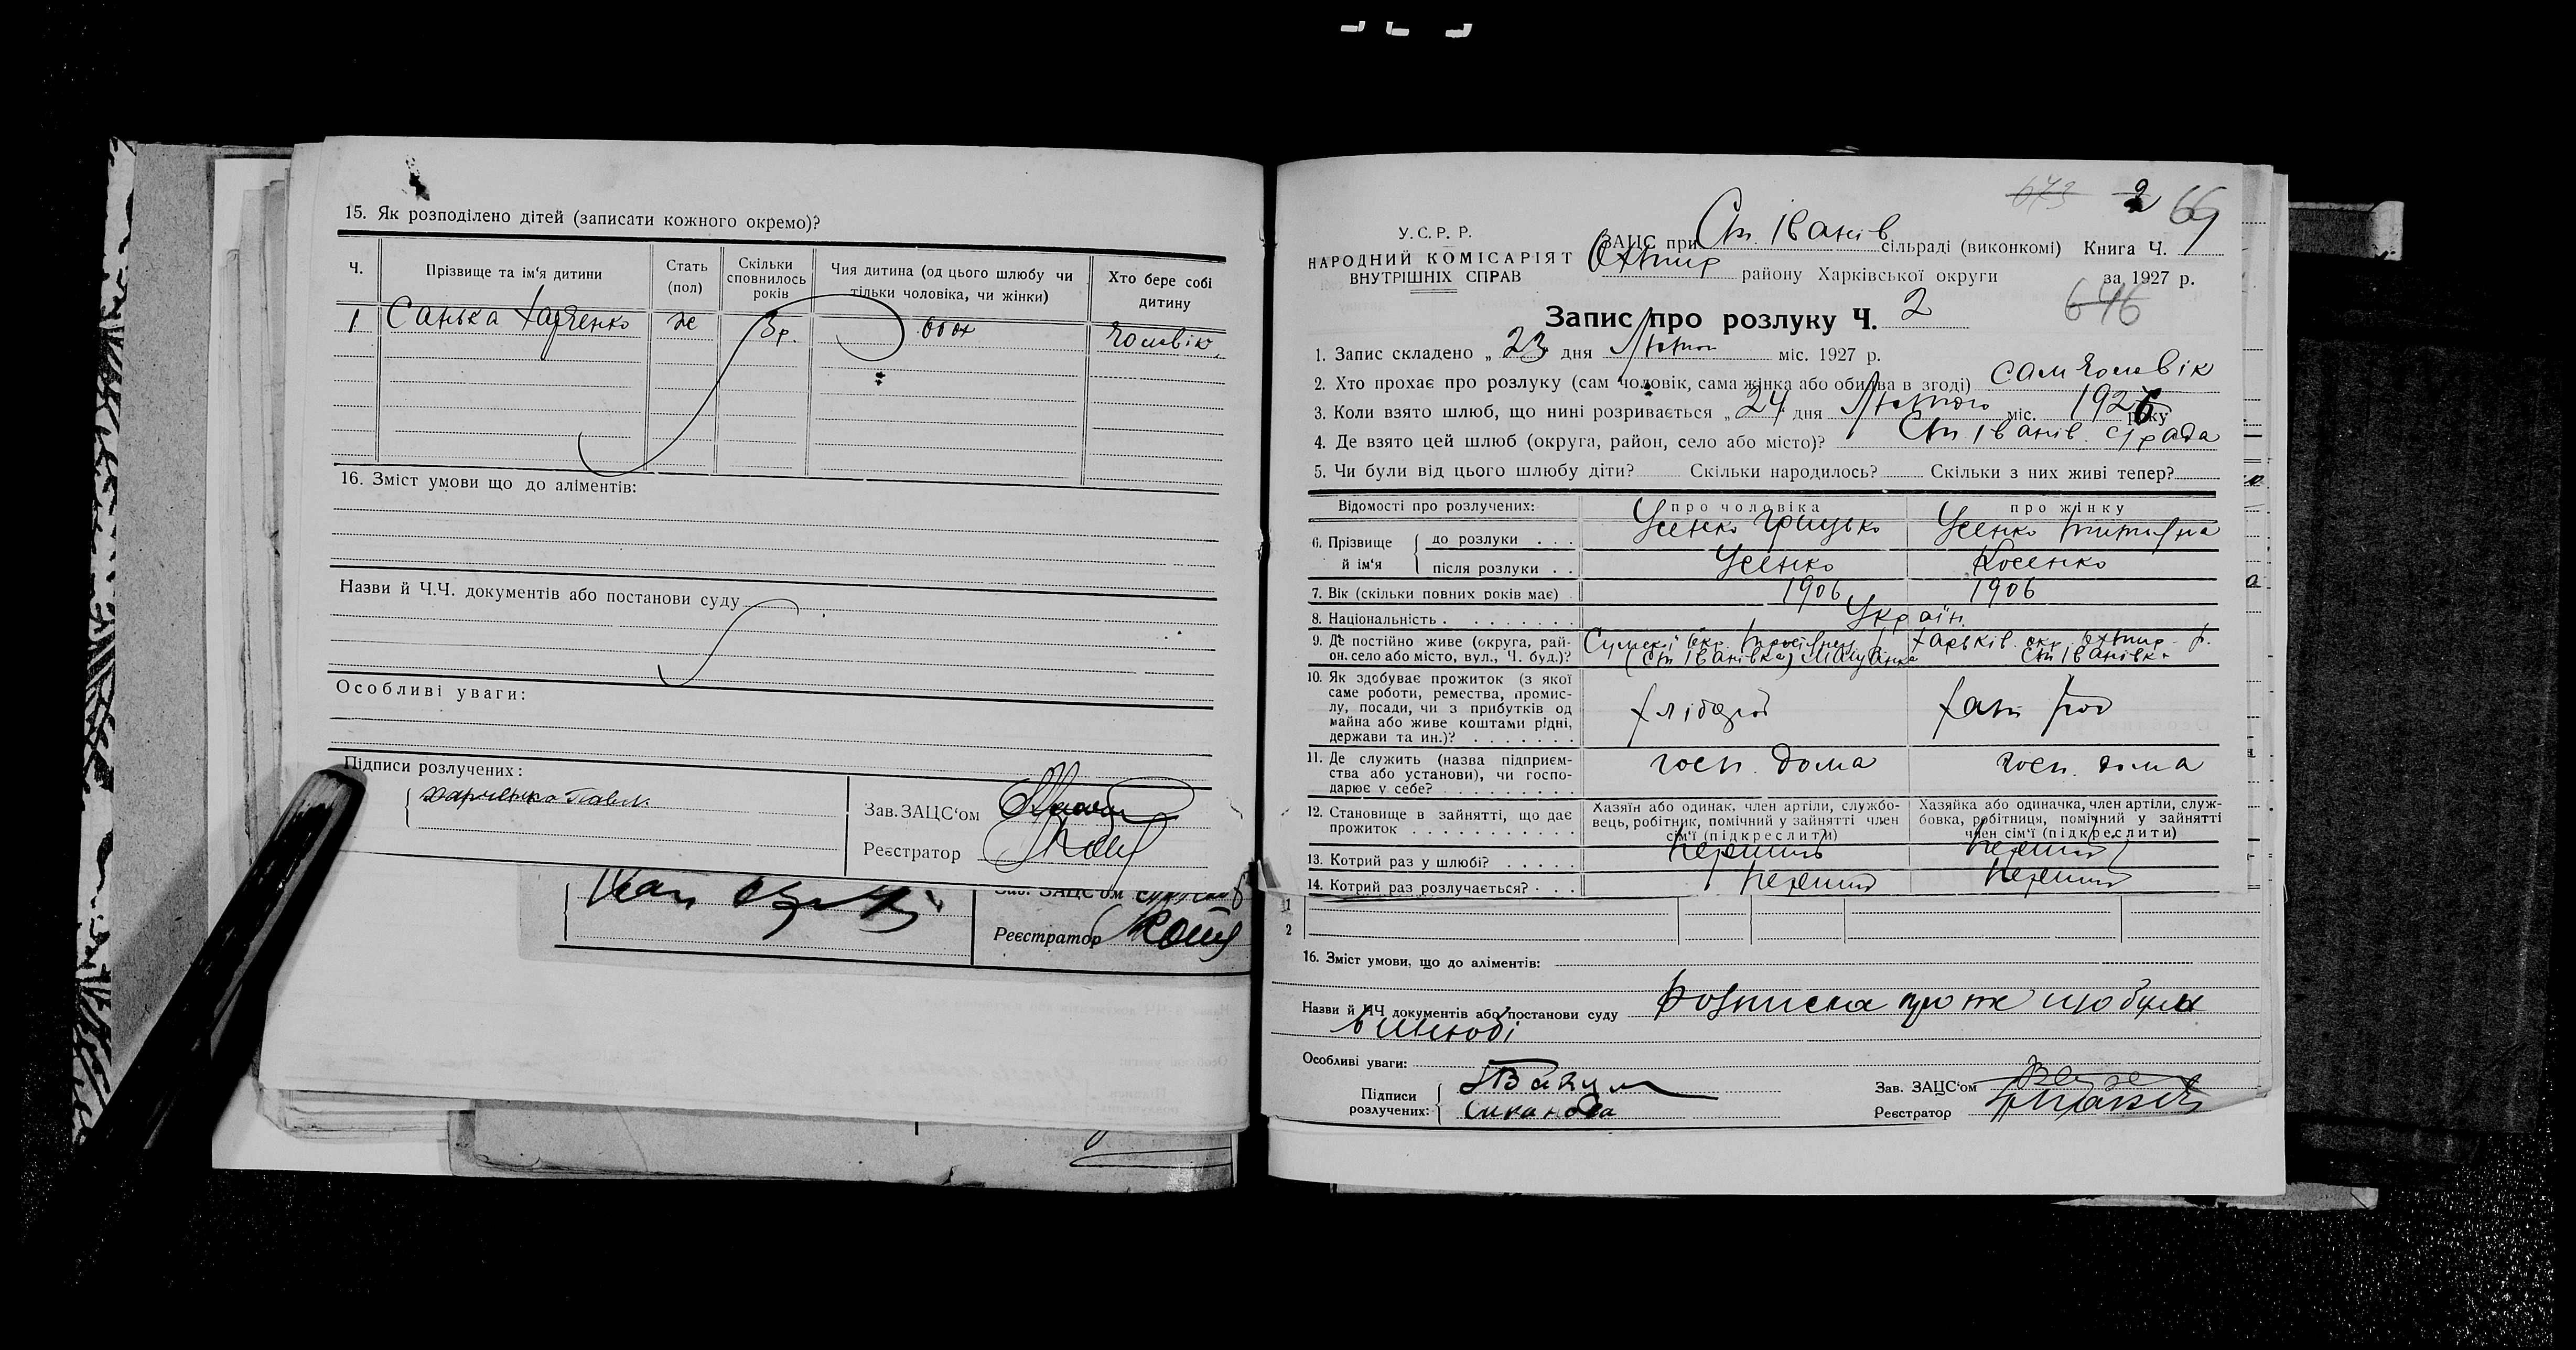 15. Як розподілено дітей (записати кожного окремо)?
Ч.
Прізвище та ім'я дитини
Стать (пол)
Скільки сповнилось років
Чия дитина (од цього шлюбу чи тільки чоловіка, чи жінки)
Хто бере собі дитину
1 Санька Харченко ж 3р. обох чоловік
16. Зміст умови що до аліментів:
Назви й Ч.Ч. документів або постанови суду
Особливі уваги:
Підписи розлучених:
Харченко Павл.
Зав. ЗАЦС'ом
Реєстратор
Зав. ЗАЦС'ом
Реєстратор
673 2 66
У. С. Р. Р.
НАРОДНИЙ КОМІСАРІЯТ
ВНУТРІШНІХ СПРАВ
ЗАЦС при Ст. Іванів сільраді (виконкомі) Книга Ч.
Охтир району Харківської округи за 1927 р.
646
Запис про розлуку Ч. 2
1. Запис складено „ 23 дня Лютого міс. 1927 р.
2. Хто прохає про розлуку (сам чоловік, сама жінка або обидва в згоді) сам чоловік
3. Коли взято шлюб, що нині розривається „ 24 дня Лютого міс. 1926 року
4. Де взято цей шлюб (округа, район, село або місто)? Ст Іванів. с/рада
5. Чи були від цього шлюбу діти? Скільки народилось? Скільки з них живі тепер?
Відомості про розлучених: про чоловіка про жінку
6. Прізвище й ім'я
до розлуки Усенко Грицько Усенко
після розлуки Усенко Косенко
7. Вік (скільки повних років має) 1906 1906
8. Національність Україн.
9. Де постійно живе (округа, район, село або місто, вул., Ч. буд.)?
Сумської окр.
(Ст Іванівка)
Харьків. окр. Охтир. р.
Ст Іванівк.
10. Як здобуває прожиток (з якої саме роботи, ремества, промислу, посади, чи з прибутків од майна або живе коштами рідні, держави та ин.)?
хлібороб
11. Де служить (назва підприємства або установи), чи господарює у себе?
госп. дома госп. дома
12. Становище в зайнятті, що дає прожиток
Хазяїн або одинак, член артілі, службовець, робітник, помічний у зайнятті член сім'ї (підкреслити)
Хазяйка або одиначка, член артілі, службовка, робітниця, помічний у зайнятті член сім'ї (підкреслити)
13. Котрий раз у шлюбі? перший перший
14. Котрий раз розлучається? перший перший
1
2
16. Зміст умови, що до аліментів:
Назви й ЧЧ документів або постанови суду Розписка про те що були
в шлюбі
Особливі уваги:
Підписи розлучених:
Зав. ЗАЦС'ом
Реєстратор